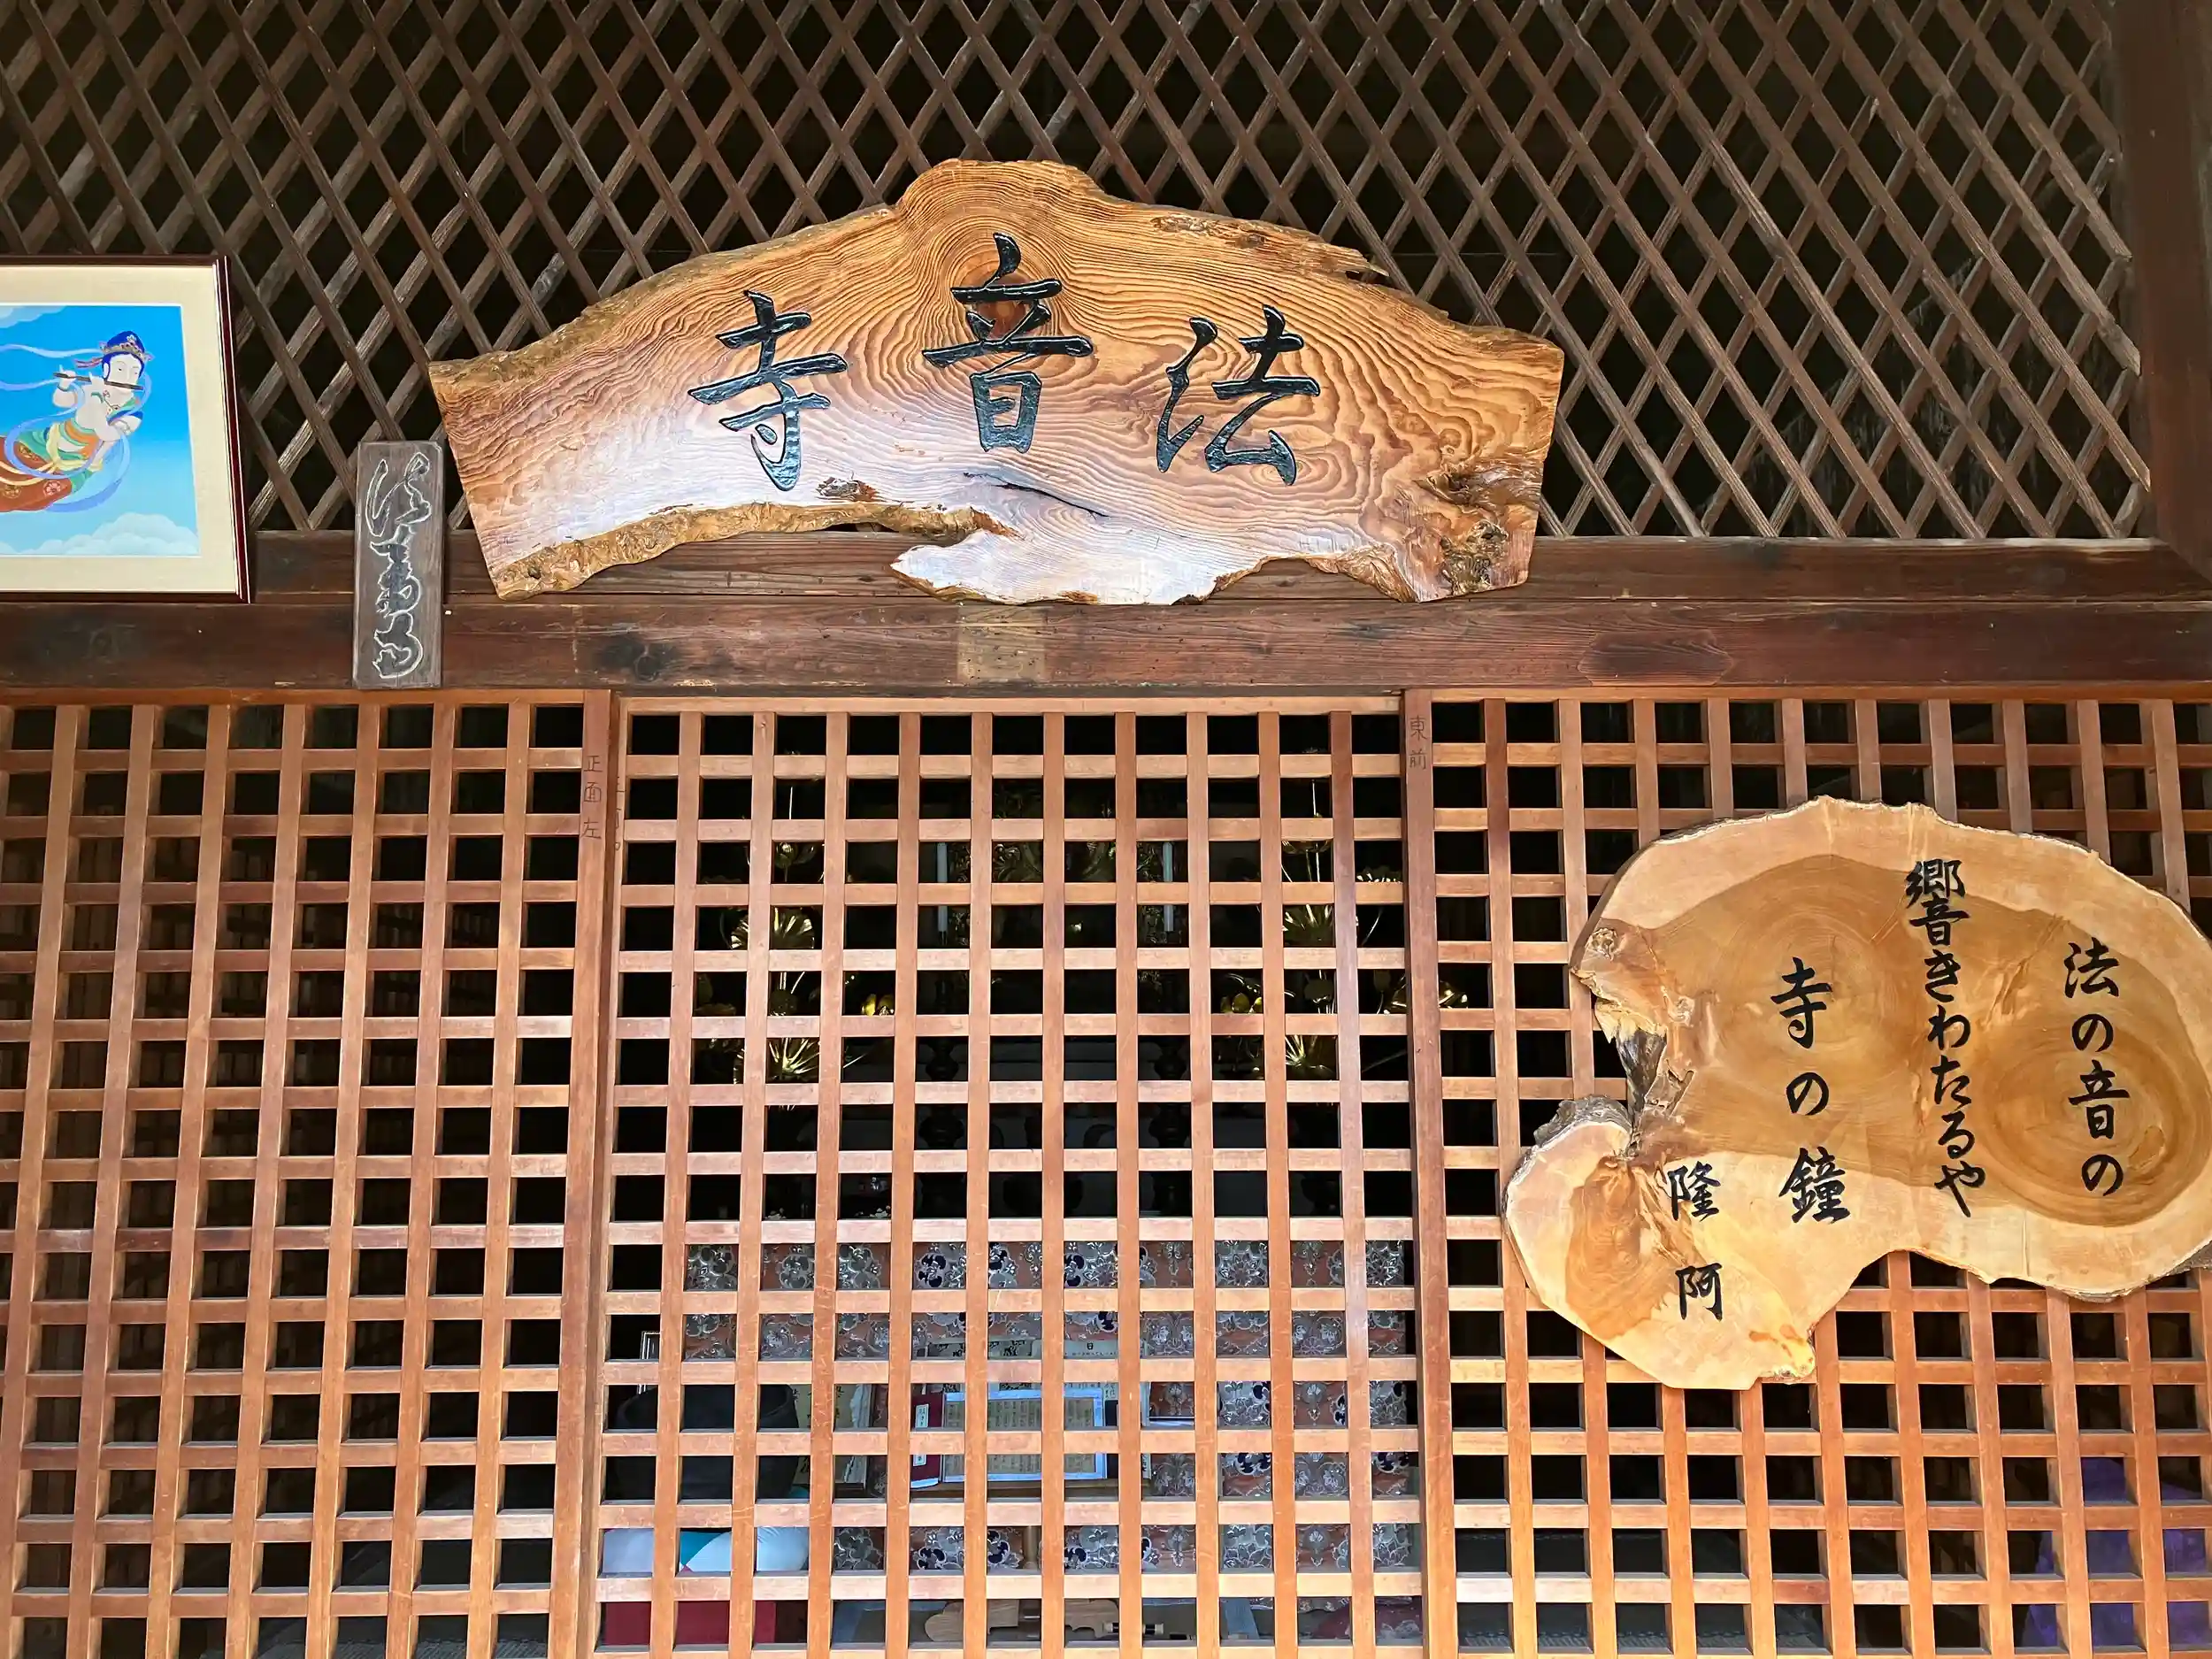 法音寺
正面左
東前
法の音の
響きわたるや
寺の鐘
隆阿